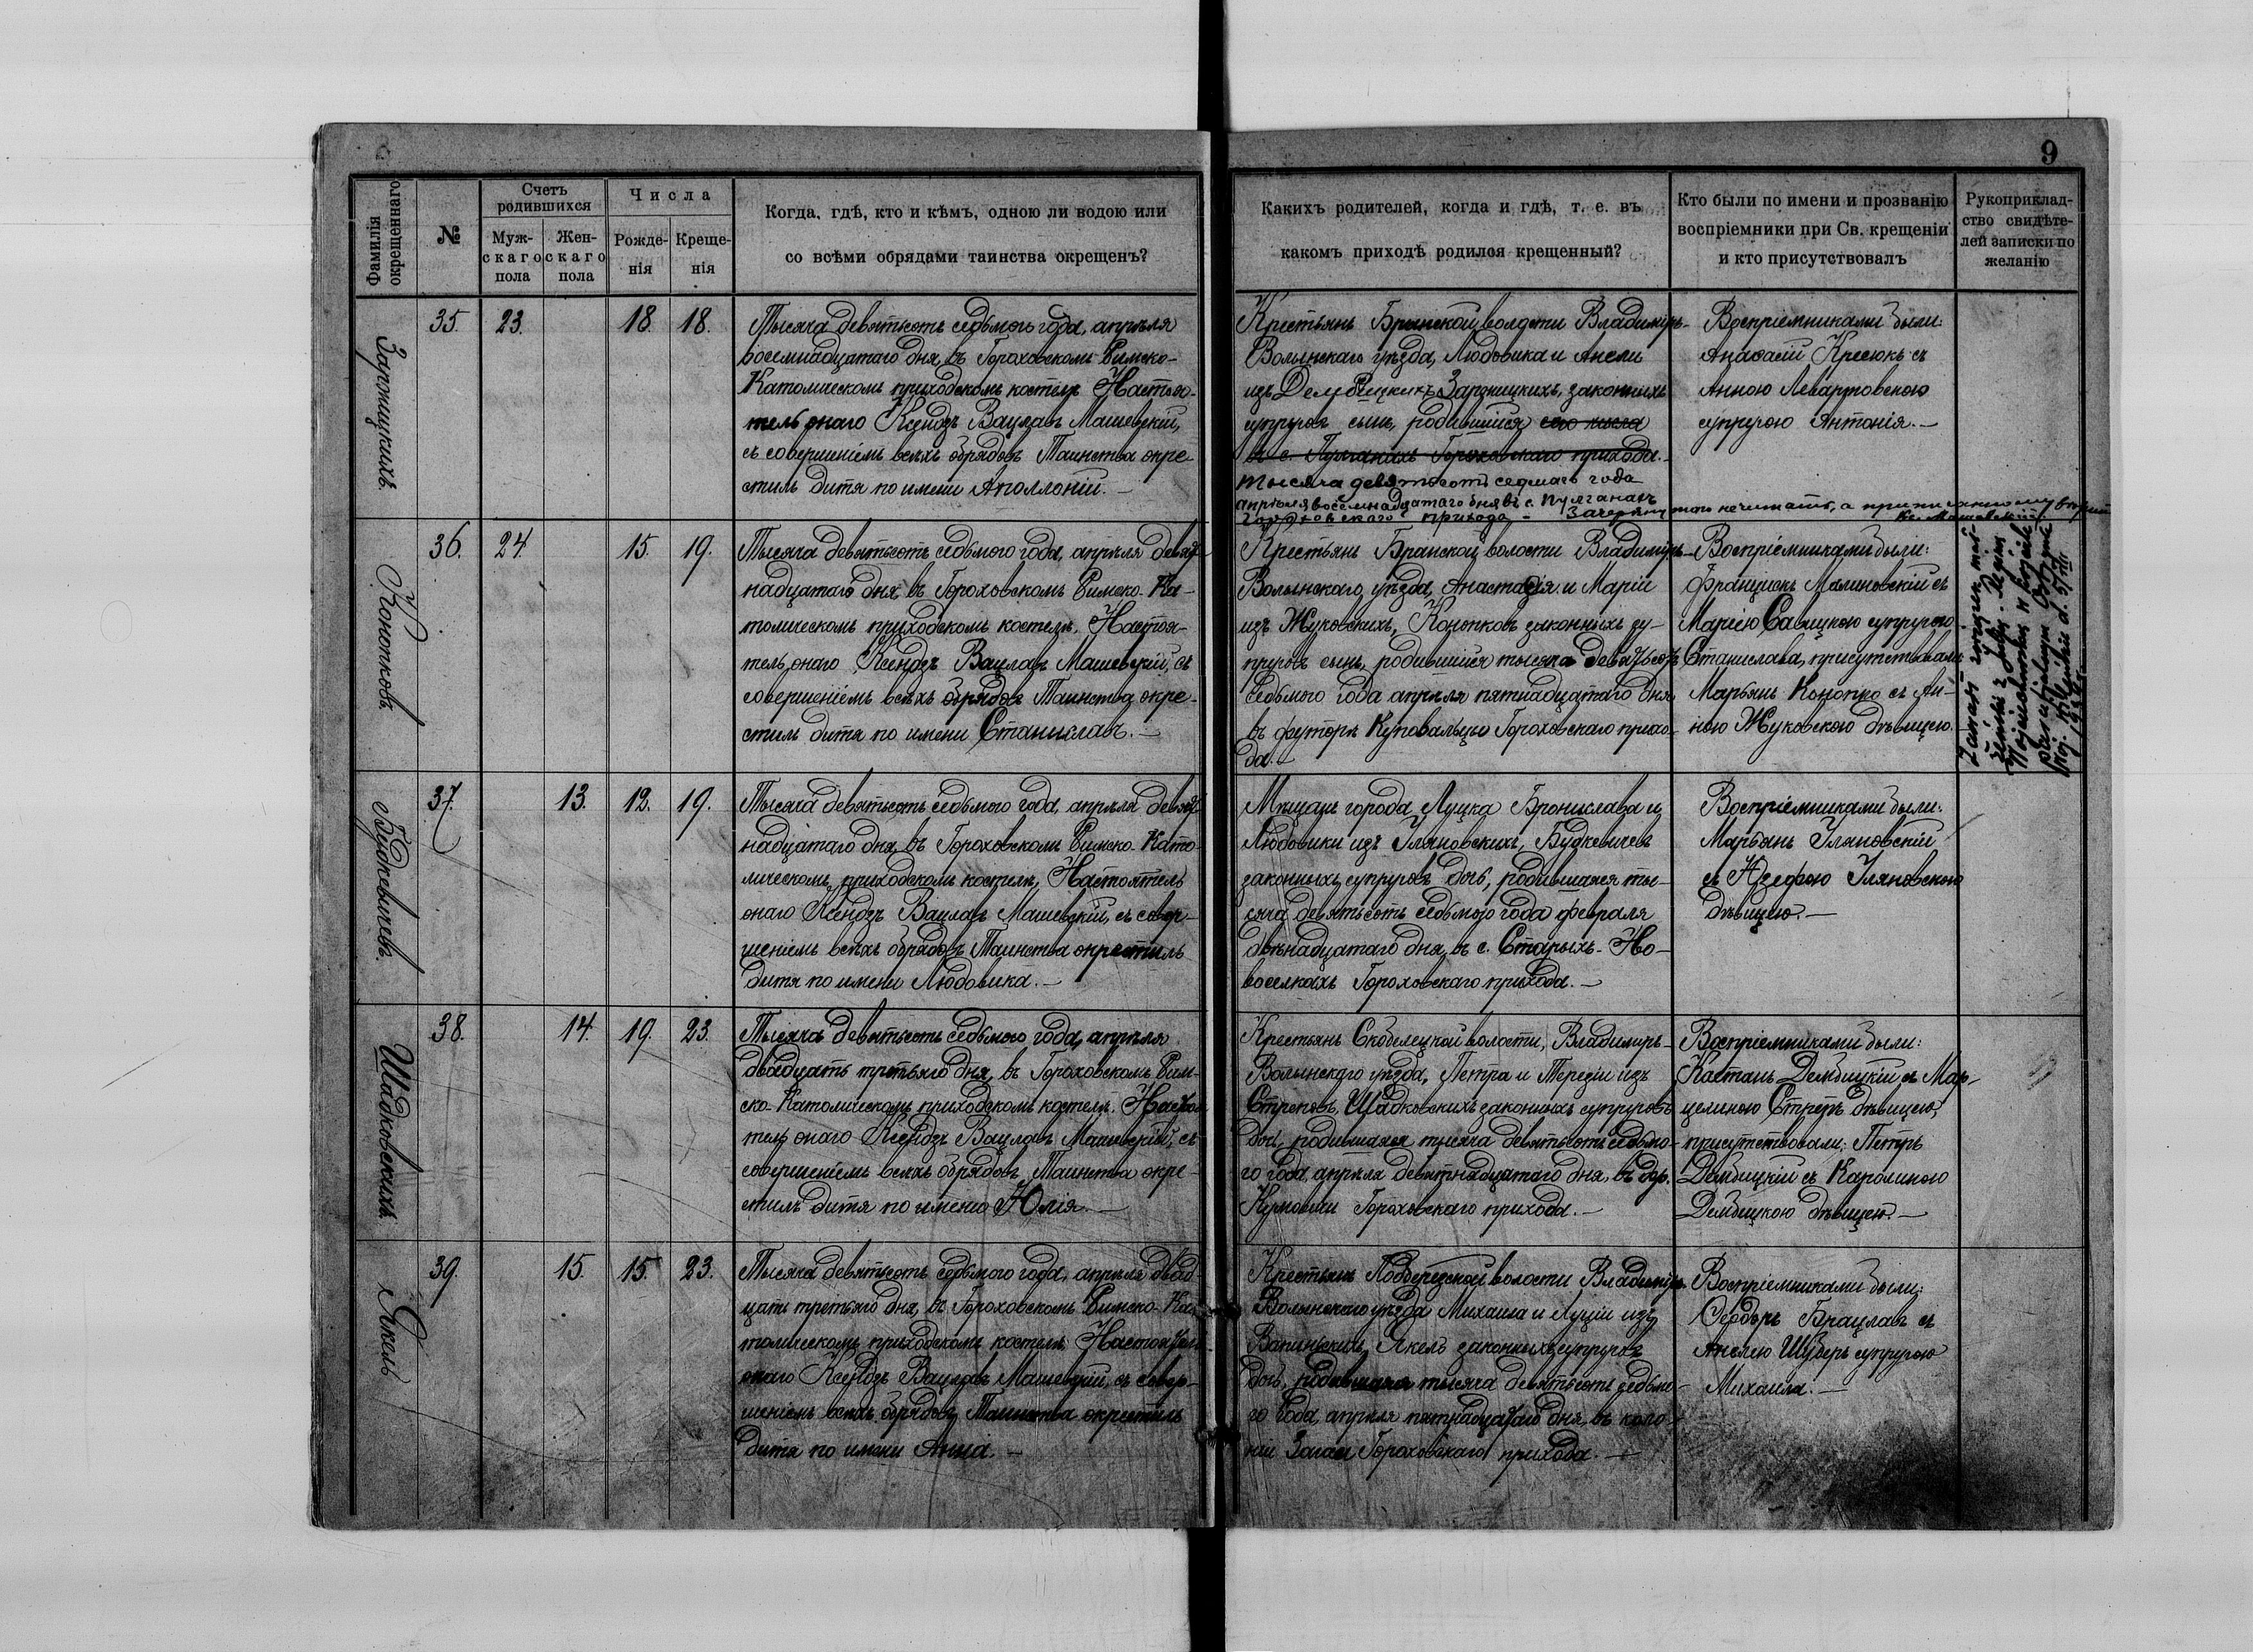 9
Фамилія окрещеннаго
№
Счетъ родившихся
Муж-
скаго
пола
Жен-
скаго
пола
Числа
Рожде-
нія
Креще-
нія
Когда, гдѣ, кто и кѣмъ, одною ли водою или
со всѣми обрядами таинства окрещенъ?
Какихъ родителей, когда и гдѣ, т. е. въ
какомъ приходѣ родился крещенный?
Кто были по имени и прозванію
воспріемники при Св. крещеніи
и кто присутствовалъ
Рукоприклад-
ство свидѣте-
лей записки по
желанію
35. 23. 18. 18.
Тысяча девятьсотъ седьмого года, апрѣля
восемнадцатаго дня, въ Гороховскомъ Римско-
Католическомъ приходскомъ костелѣ Настоя-
тель онаго Ксендзъ Вацлавъ Машевскій,
съ совершеніемъ всѣхъ обрядовъ Таинства окре-
стилъ дитя по имени Аполлоній.—
Крестьянъ Бранской волости Владиміръ-
Волынскаго уѣзда, Людовика и Анели
изъ Дембицкихъ, законныхъ
супруговъ сынъ, родившійся сего числа
въ с. Пулганахъ Гороховскаго прихода.—
тысяча девятьсотъ седмаго года
апрѣля восемнадцатаго дня въ с. Пулганахъ
Гороховскаго прихода -
Воспріемниками были:
Анною Левартовскою
супругою Антонія.—
36. Конопковъ 24. 15. 19.
Тысяча девятьсотъ седьмого года, апрѣля девят-
надцатаго дня въ Гороховскомъ Римско-Ка-
толическомъ приходскомъ костелѣ, Настоя-
тель онаго Ксендзъ Вацлавъ Машевскій, съ
совершеніемъ всѣхъ обрядовъ Таинства окре-
стилъ дитя по имени Станиславъ.—
Крестьянъ Бранской волости Владиміръ-
Волынскаго уѣзда, Анастасія и Маріи
изъ Жуковскихъ, Конопковъ законныхъ су-
пруговъ сынъ, родившійся тысяча девятьсотъ
седьмого года апрѣля пятнадцатаго дня
въ футорѣ Куповальцы Гороховскаго прихо-
да.—
Воспріемниками были:
Францискъ Малиновскій съ
Маріею Савицкою супругою
Станислава, присутствовали
Марьянъ Конопко съ Ан-
ною Жуковскою дѣвицею.
37. Будкевичевъ 13. 12. 19.
Тысяча девятьсотъ седьмого года, апрѣля девят-
надцатаго дня, въ Гороховскомъ Римско-Като-
лическомъ приходскомъ костелѣ, Настоятель
онаго Ксендзъ Вацлавъ Машевскій, съ совер-
шеніемъ всѣхъ обрядовъ Таинства окрестилъ
дитя по имени Людовика.—
Мѣщанъ города Луцка Бронислава и
Людовики изъ Уляновскихъ, Будкевичевъ
законныхъ супруговъ дочь, родившаяся ты-
сяча девятьсотъ седьмого года февраля
двѣнадцатаго дня, въ с. Старыхъ-Но-
воселкахъ Гороховскаго прихода.—
Воспріемниками были:
Марьянъ Уляновскій
съ Юзефою Уляновскою
дѣвицею.—
38. Шадковскихъ 14. 19. 23.
Тысяча девятьсотъ седьмого года, апрѣля
двадцать третьяго дня, въ Гороховскомъ Рим-
ско-Католическомъ приходскомъ костелѣ, Настоя-
тель онаго Ксендзъ Вацлавъ Машевскій, съ
совершеніемъ всѣхъ обрядовъ Таинства окре-
стилъ дитя по имени Юлія.—
Крестьянъ Скобелецкой волости, Владиміръ-
Волынскаго уѣзда, Петра и Терезіи изъ
Шадковскихъ законныхъ супруговъ
дочь, родившаяся тысяча девятьсотъ седьмо-
го года, апрѣля девятнадцатаго дня, въ дер.
Гороховскаго прихода.—
Воспріемниками были:
Каетанъ Дембицкій съ Мар-
целиною дѣвицею,
присутствовали: Петръ
Дембицкій съ Каролиною
Дембицкою дѣвицею.—
39. Якель 15. 15. 23.
Тысяча девятьсотъ седьмого года, апрѣля двад-
цать третьяго дня, въ Гороховскомъ Римско-Ка-
толическомъ приходскомъ костелѣ Настоятель
онаго Ксендзъ Вацлавъ Машевскій, съ совер-
шеніемъ всѣхъ обрядовъ Таинства окрестилъ
дитя по имени Анна.—
Крестьянъ Подберезской волости Владиміръ-
Волынскаго уѣзда Михаила и Луціи изъ
Якель законныхъ супруговъ
дочь, родившаяся тысяча девятьсотъ седьмо-
го года, апрѣля пятнадцатаго дня, въ коло-
ніи Загаи Гороховскаго прихода.—
Воспріемниками были:
Ѳеодоръ Брацлавъ съ
Анелею Шуберъ супругою
Михаила.—